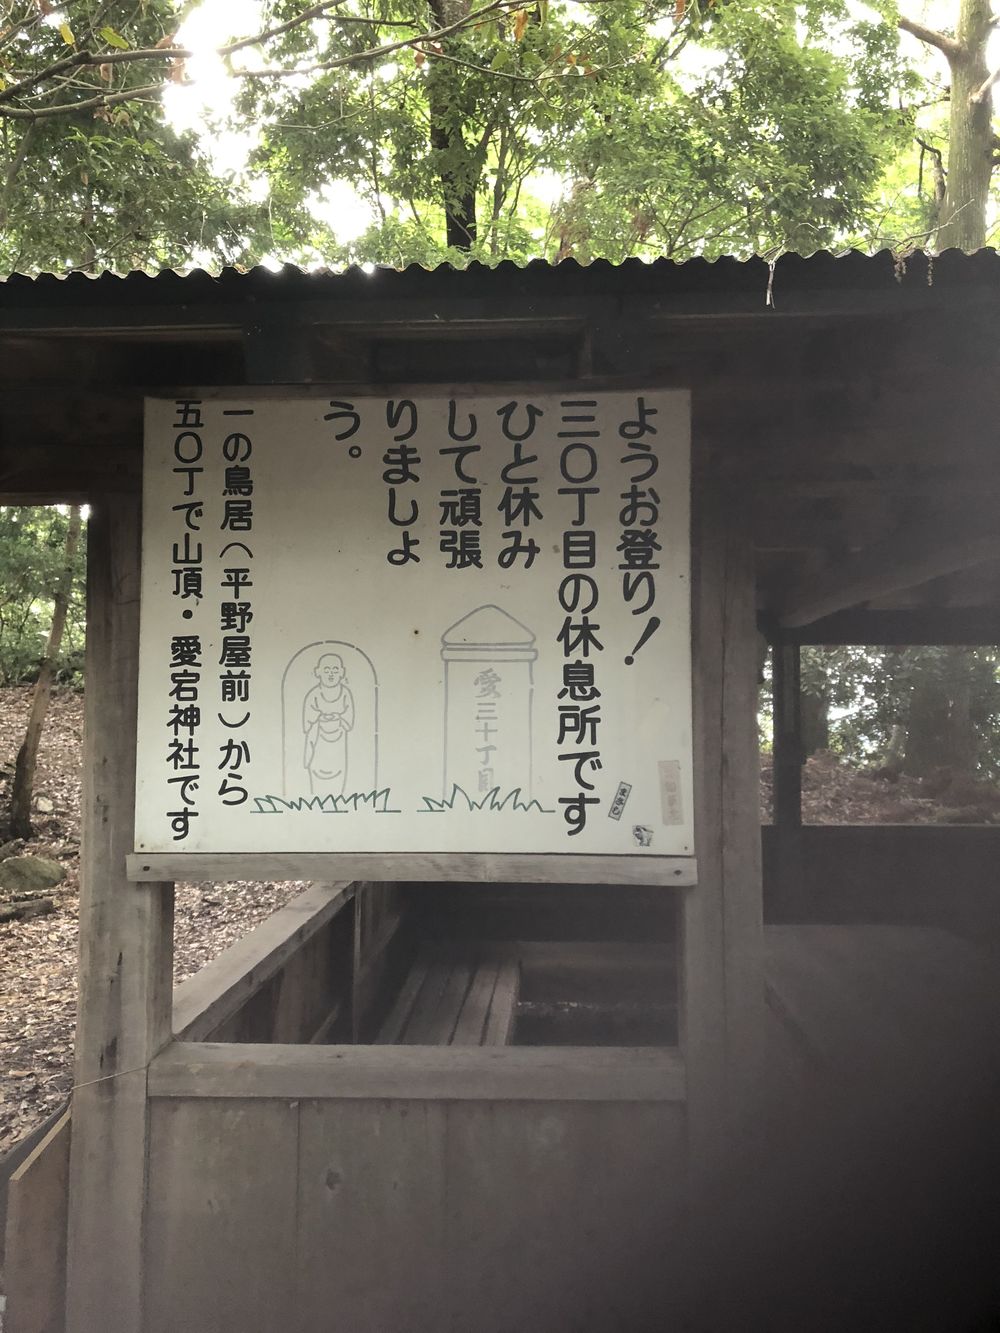 ようお登り！
三〇丁目の休息所です
ひと休み
して頑張
りましょ
う。
愛三十丁目
一の鳥居（平野屋前）から
五〇丁で山頂・愛宕神社です